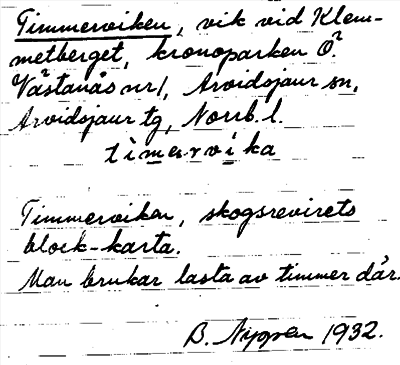 Timmerviken, vik vid Klem-
metberget, kronoparken Ö.
Västanås nr 1, Arvidsjaur sn,
Arvidsjaur tg, Norrb. l.
timervika
Timmerviken, skogsrevirets
block-karta.
Man brukar lasta av timmer där.
B. Nyppen 1932.